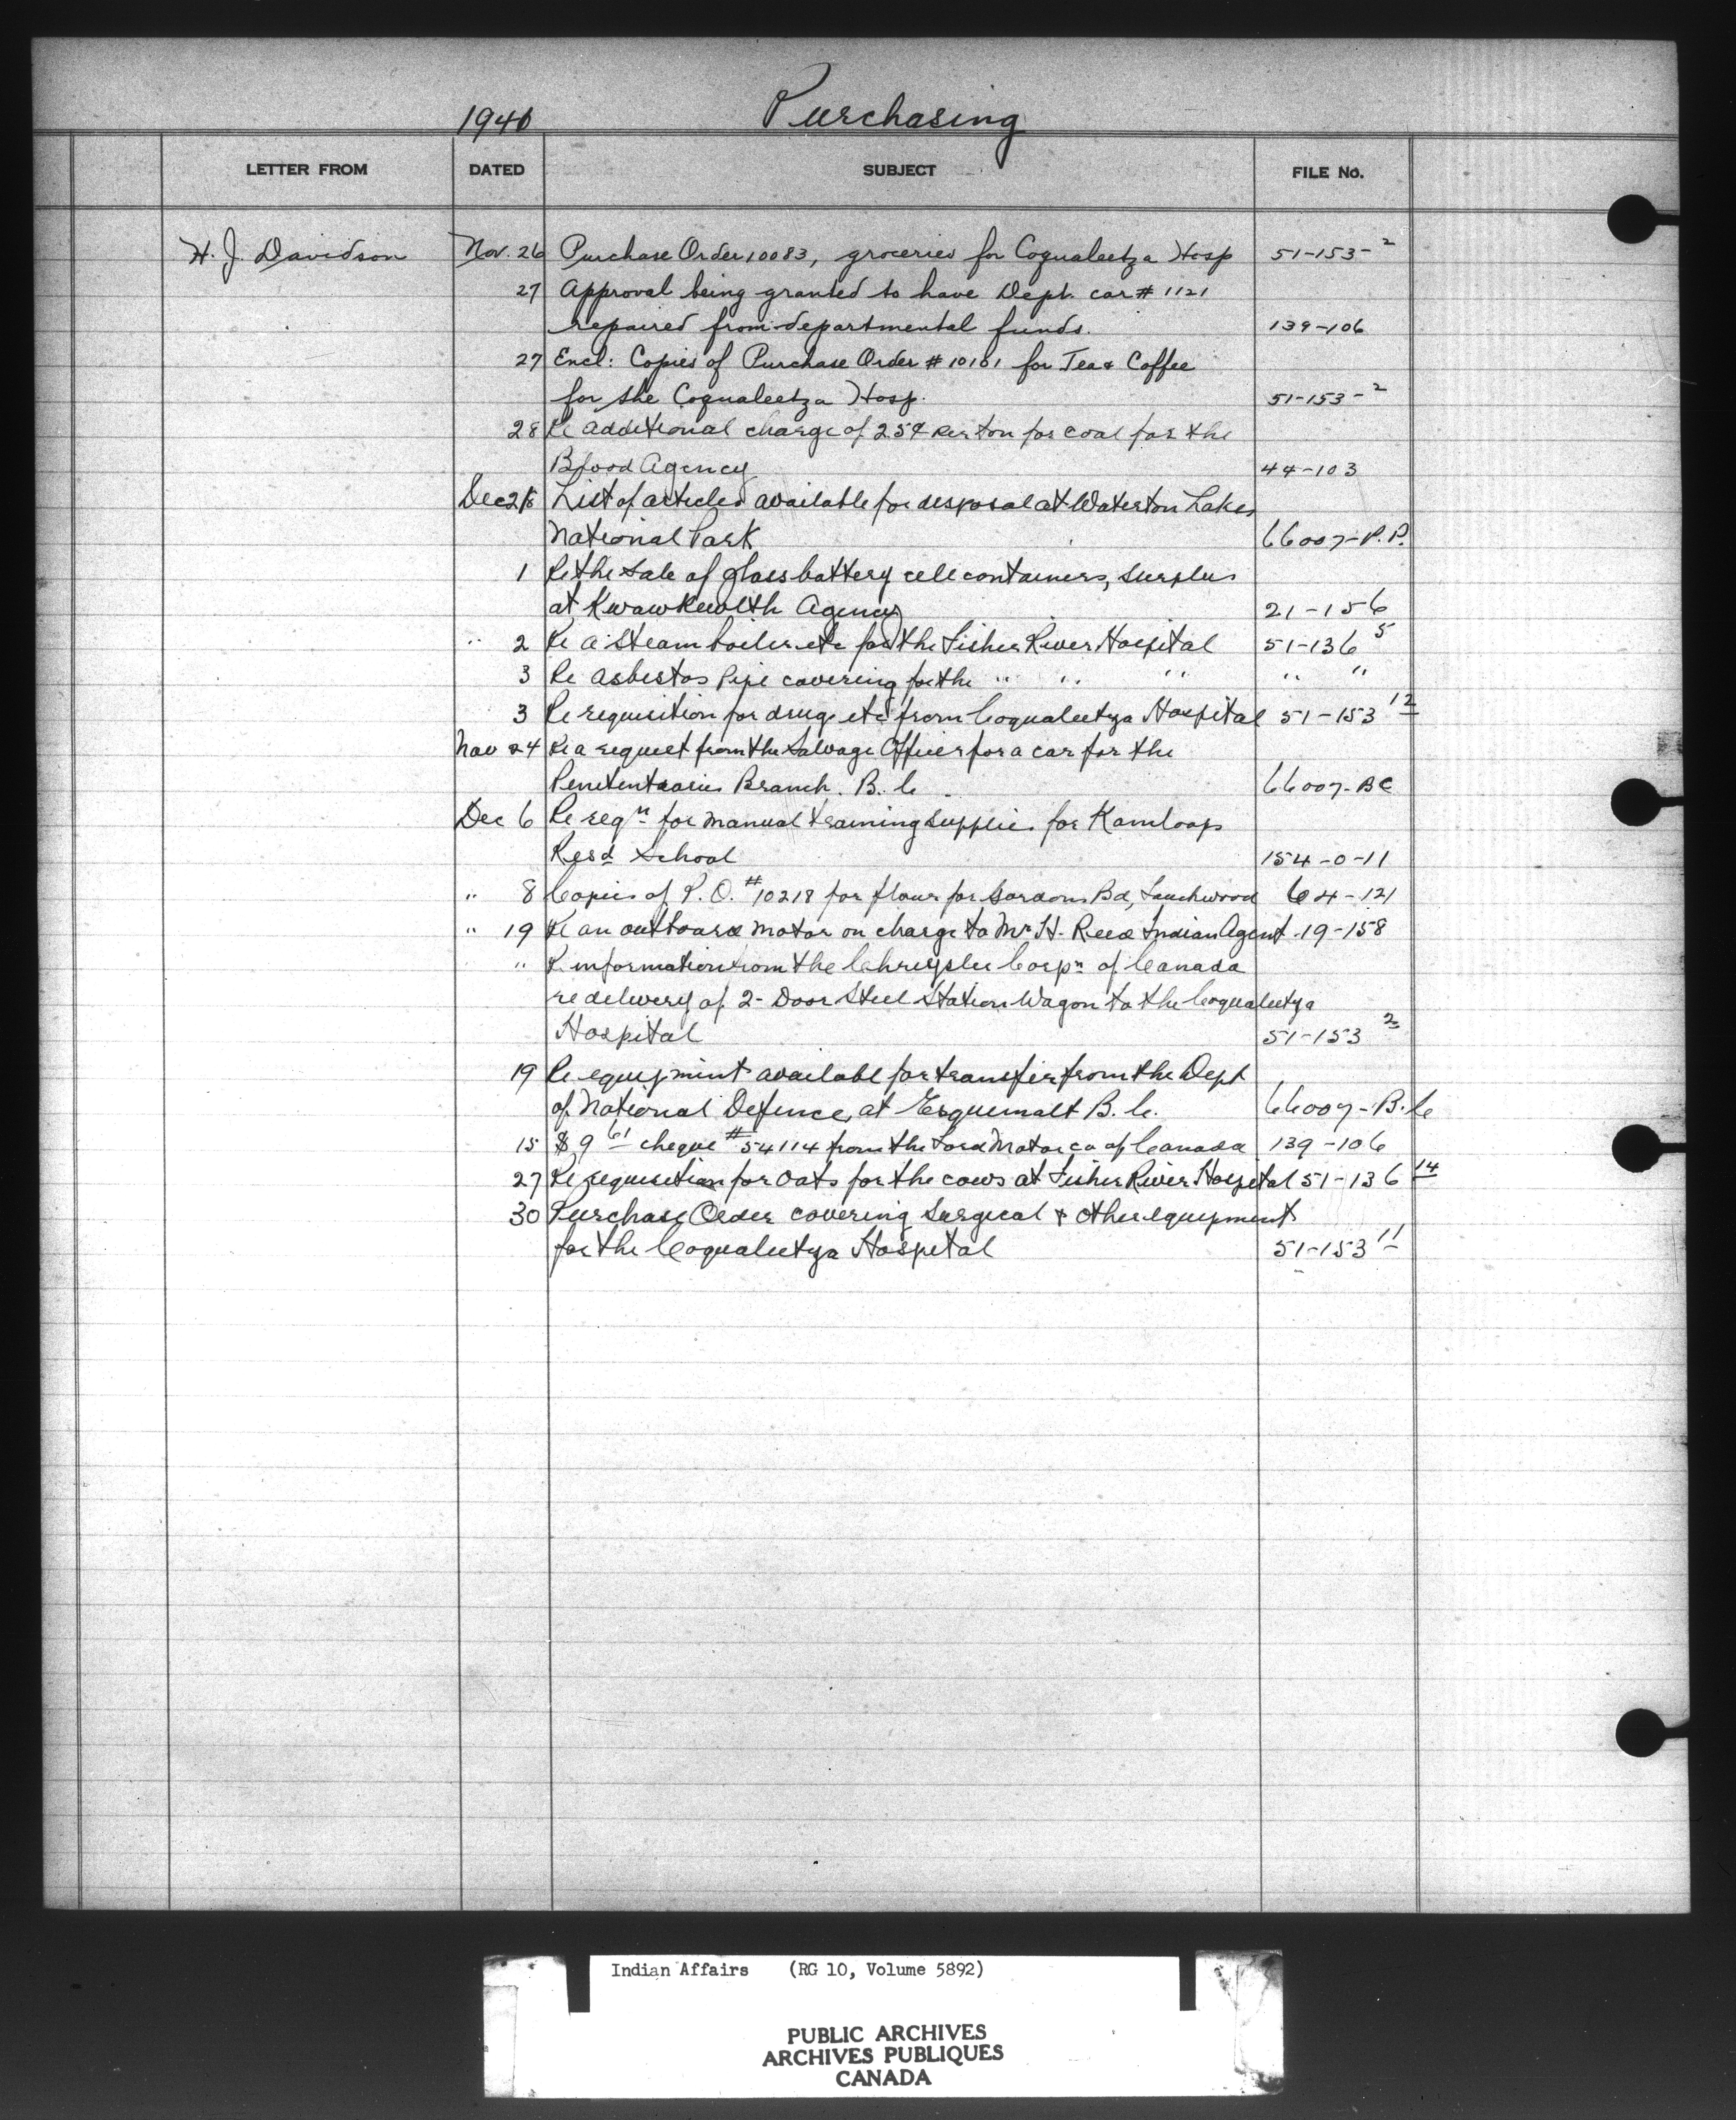 1946 Purchasing
LETTER FROM DATED SUBJECT FILE No.
H. J. Davidson Nov. 26 Purchase Order 10083, groceries for Coqualeetza Hosp 51-153-2
27 Approval being granted to have Dept. car # 1121
repaired from departmental funds. 139-106
27 Encl: Copies of Purchase Order # 10101 for Tea & Coffee
for the Coqualeetza Hosp. 51-153-2
28 Re additional charge of 25¢ per ton for coal for the
Blood Agency 44-103
List of articles available for disposal at Waterton Lakes
National Park 66007-P.P.
1 Re the sale of glass battery cell containers, surplus
at Kwawkewlth Agency 21-156
" 2 Re a steam boiler etc for the Fisher River Hospital 51-136 5
3 Re asbestos pipe covering for the " " " " "
3 Re requisition for drugs etc from Coqualeetza Hospital 51-153 12
Nov 24 Re a request from the Salvage Officer for a car for the
Penitentiaries Branch. B.C. 66007-BC
Dec 6 Re reqn for manual training supplies for Kamloops
Resd School 154-0-11
" 8 Copies of P.O. #10218 for flour for Gordons Bd, 64-121
" 19 Re an outboard motor on charge to Mr H. Reed Indian Agent 19-158
" Re information from the Chrysler Corpn of Canada
re delivery of 2-Door Steel Station Wagon to the Coqualeetza
Hospital 51-153 2
19 Re equipment available for transfer from the Dept
of National Defence, at Esquimalt B.C. 66007-B.C
15 $9 61 cheque #54114 from the Ford Motor co of Canada 139-106
27 Re requisition for oats for the cows at Fisher River Hospital 51-136 14
30 Purchase Order covering surgical & other equipment
for the Coqualeetza Hospital 51-153 11
Indian Affairs (RG 10, Volume 5892)
PUBLIC ARCHIVES
ARCHIVES PUBLIQUES
CANADA